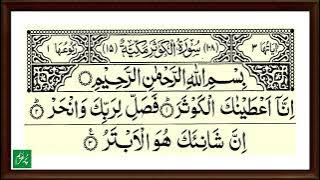 اٰيَاتُهَا ٣ (١٠٨) سُوْرَةُ الْكَوْثَرِ مَكِّيَّةٌ (١٥) رُكُوْعُهَا ١
بِسْمِ اللّٰهِ الرَّحْمٰنِ الرَّحِيْمِ
اِنَّاۤ اَعْطَيْنٰكَ الْكَوْثَرَ ۝١ فَصَلِّ لِرَبِّكَ وَانْحَرْ ۝٢
اِنَّ شَانِئَكَ هُوَ الْاَبْتَرُ ۝٣